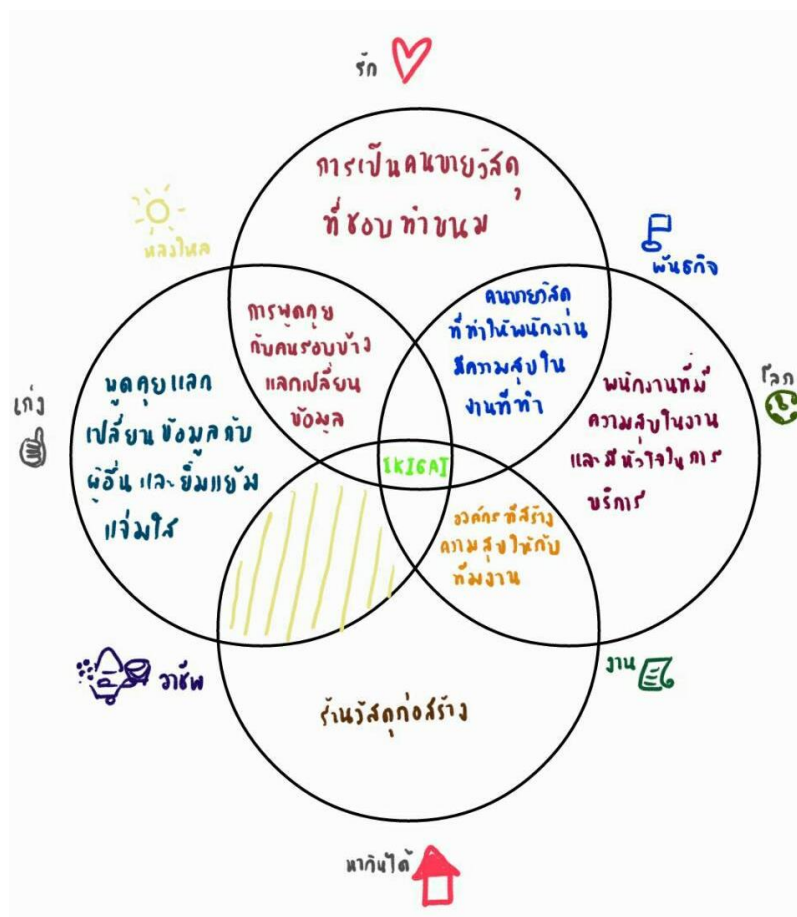 รัก
การเป็นคนขายวัสดุ
ที่ชอบทำขนม
หลงใหล
พันธกิจ
การพูดคุย
กับคนรอบข้าง
แลกเปลี่ยน
ข้อมูล
คนขายวัสดุ
ที่ทำให้พนักงาน
มีความสุขใน
งานที่ทำ
เก่ง
พูดคุยแลก
เปลี่ยนข้อมูลกับ
ผู้อื่น และยิ้มแย้ม
แจ่มใส
โลก
พนักงานที่มี
ความสุขในงาน
และมีหัวใจในการ
บริการ
IKIGAI
องค์กรที่สร้าง
ความสุขให้กับ
ทีมงาน
วิชาชีพ
งาน
ร้านวัสดุก่อสร้าง
หากินได้